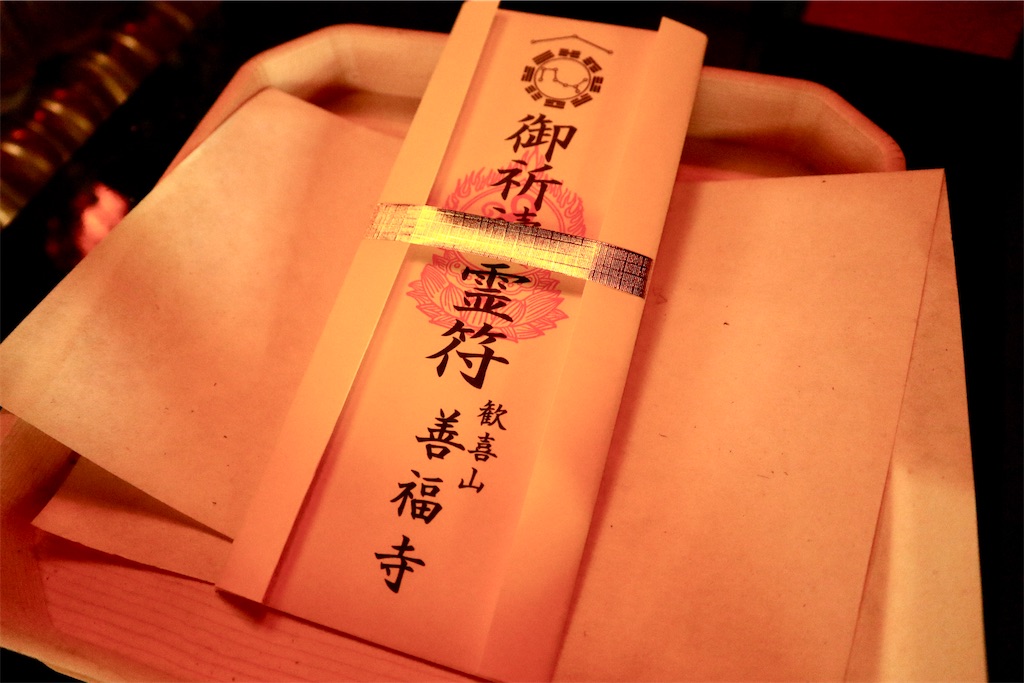 御祈 霊符
歓喜山
善福寺